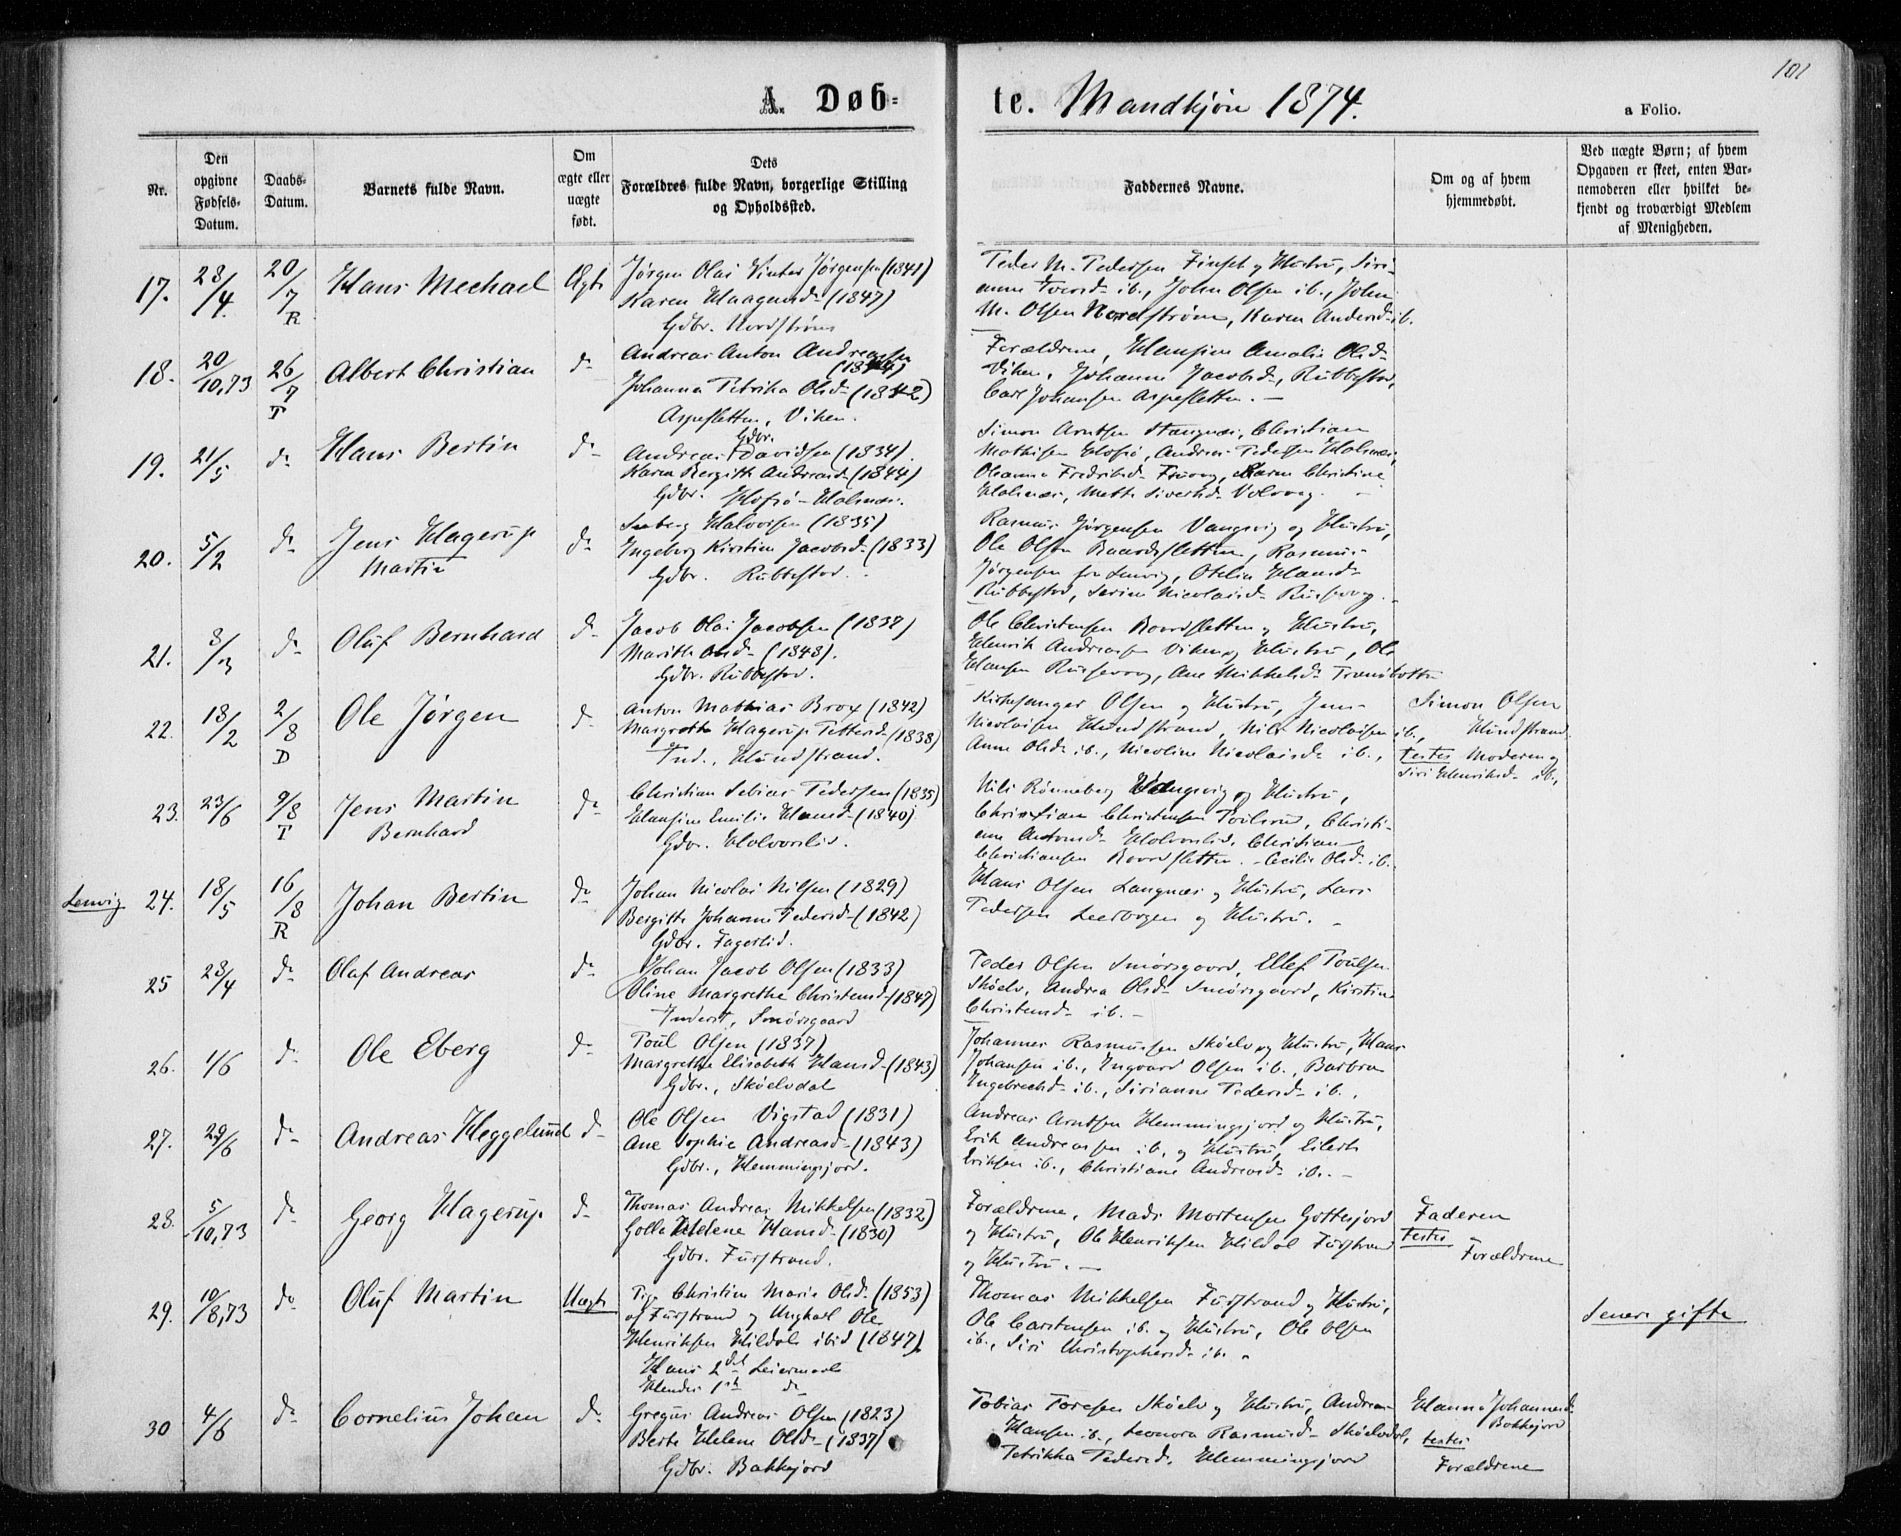 101
A. Døb- te. Mandkjøn 1874.
a Folio.
Nr.
Den opgivne Fødsels-Datum.
Daabs-Datum.
Barnets fulde Navn.
Om ægte eller uægte født.
Dets Forældres fulde Navn, borgerlige Stilling og Opholdssted.
Faddernes Navne.
Om og af hvem hjemmedøbt.
Ved uægte Børn; af hvem Opgaven er skeet, enten Barnemoderen eller hvilket bekjendt og troværdigt Medlem af Menigheden.
17. 28/4. 20/7 R Hans Mechael Ægte
Jørgen Olai Vinter Jørgensen (1841)
Karen Haagensd. (1847)
Gdbr. Nordstrøm
Peder M. Pedersen Finset og Hustru, Siri-
anne Iversd. ib., John Olsen ib., John
M. Olsen Nordstrøm, Karen Andersd. ib.
18. 20/10,73 26/7 T Albert Christian do
Andreas Anton Andreassen
(1844)
Johanna Petrika Olsd. (1842)
Aspesletten, Viken.
Forældrene, Hansine Amalie Olsd.
Viken, Johanne Jacobsd., Rubbestad,
Carl Johansen Aspesletten. —
19. 21/5 do Hans Bertin do
Gdbr.
Andreas Davidsen (1834).
Karen Bergitte Andreasd. (1844)
Gdbr. Hofsø - Holmen.
Simon Arntsen Stangnes, Christian
Mathisen Hofsø, Andreas Pedersen Holmen,
Oleanna Fredriksd., Karen Christine
Holmen, Mette Sivertsd. Volvaag. —
20. 5/2 do Jens Hagerup
Martin do
Halvorsen (1835)
Ingeborg Kirstine Jacobsd. (1833)
Gdbr. Rubbestad.
Rasmus Jørgensen Vangsvig og Hustru,
Ole Olsen Baardsletten, Rasmus
Jørgensen fra Lenvig, Otelie Hansd.
Rubbestad, Serine Nicolaisd. Russevaag.
21. 8/3 do Oluf Bernhard do
Jacob Olai Jacobsen (1837)
Marith Olsd. (1848).
Gdbr. Rubbestad.
Ole Christensen Baardsletten og Hustru,
Henrik Andreassen Viken og Hustru, Ole
Hansen Russevaag, Ane Mikkelsd. Tranøbotten
22. 18/2 2/8 D Ole Jørgen do
Anton Mathias Brox (1842)
Margrethe Hagerup Pettersd. (1838)
Ind., Hundstrand.
Kirkesanger Olsen og Hustru, Jens
Nicolaisen Hundstrand, Nils Nicolaisen ib.,
Anne Olsd. ib., Nicoline Nicolaisd. ib.,
Simon Olsen
Hundstrand
testes Moderen og
Siri Henriksd. ib.,
23. 23/6 9/8 T Jens Martin
Bernhard do
Christian Tobias Pedersen (1835)
Hansine Emilie Hansd. (1840)
Gdbr. Holvorslid.
Nils Rønneberg Vangsvig og Hustru,
Christian Christensen, Christi-
ane Antonsd. Holvorslid, Christian
Christiansen Baardsletten. - Cecilie Olsd. ib.
Lenvig 24. 18/5 16/8 R Johan Bertin do
Johan Nicolai Nilsen (1829)
Bergitte Johanne Pedersd. (1842)
Gdbr. Fagerlid.
Hans Olsen Langnes og Hustru, Lars
Pedersen Leerbogen og Hustru. —
25 28/4 do Olaf Andreas do
Johan Jacob Olsen (1833)
Oline Margrethe Christensd. (1847)
Inderst, Smørsgaard
Peder Olsen Smørsgaard, Ellef Poulsen
Skøelv, Andrea Olsd. Smørsgaard, Kirstine
Christensd. ib. —
26. 1/6 do Ole Eberg do
Poul Olsen (1837)
Margrethe Elisabeth Hansd. (1843)
Gdbr., Skøelvdal
Johannes Rasmussen Skøelv og Hustru, Hans
Johansen ib., Ingvard Olsen ib., Barbra
Ingebrechtsd. ib., Sirianne Pedersd. ib..
27. 29/6 do Andreas Heggelund do
Ole Olsen Vigstad (1831)
Ane Sophie Andreasd. (1843)
Gdbr., Hemmingsjord.
Andreas Arntsen Hemmingsjord og Hustru,
Erik Andreassen ib. og Hustru, Eilert
Eriksen ib., Christiane Andreasd. ib. —
28. 5/10,73 do Georg Hagerup do
Thomas Andreas Mikkelsen (1832)
Golla Helene Hansd. (1830)
Gdbr. Furstrand.
Forældrene, Mads Mortensen Gottesjord
og Hustru, Ole Henriksen Hildal Furstrand
og Hustru. —
Faderen
testes
Forældrene
29. 10/8,73 do Oluf Martin Uægte
Pige Christine Marie Olsd. (1853)
af Furstrand og Ungkarl Ole
Henriksen Hildal ibid (1847).
Hans 2det Leiermaal
Hendes 1ste do
Thomas Mikkelsen Furstrand og Hustru,
Ole Carstensen ib. og Hustru, Ole Olsen
ib., Siri Christophersd. ib.
Senere gifte
30 4/6 do Cornelius Johan do
Gregus Andreas Olsen (1823)
Berte Helene Olsd. (1837)
Gdbr. Bakkejord
Tobias Toresen Skøelv og Hustru, Andreas
Hansen ib., Leonora Rasmusd. Skøelvdal,
Petrikka Pedersd. Hemmingsjord
Hanna Johannesd.
Bakkejord
testes
Forældrene